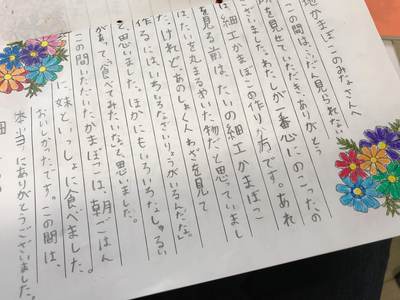 地かまぼこのみなさんへ
この間は、ふだん見られない
所を見せていただき、ありがとう
ございました。わたしが一番心にのこったの
は、細工かまぼこの作り方です。あれ
を見る前は、たいの細工かまぼこ
は、たいを丸まるやいた物だと思っていまし
た。けれど、あのしょく人わざを見て
作るには、いろいろなざいりょうがいるんだな。
と思いました。ほかにもいろいろなしゅるい
があって食べてみたいなと思いました。
この間いただいたかまぼこは、朝ごはん
に妹といっしょに食べました。
おいしかったです。この間は、
本当にありがとうございました。